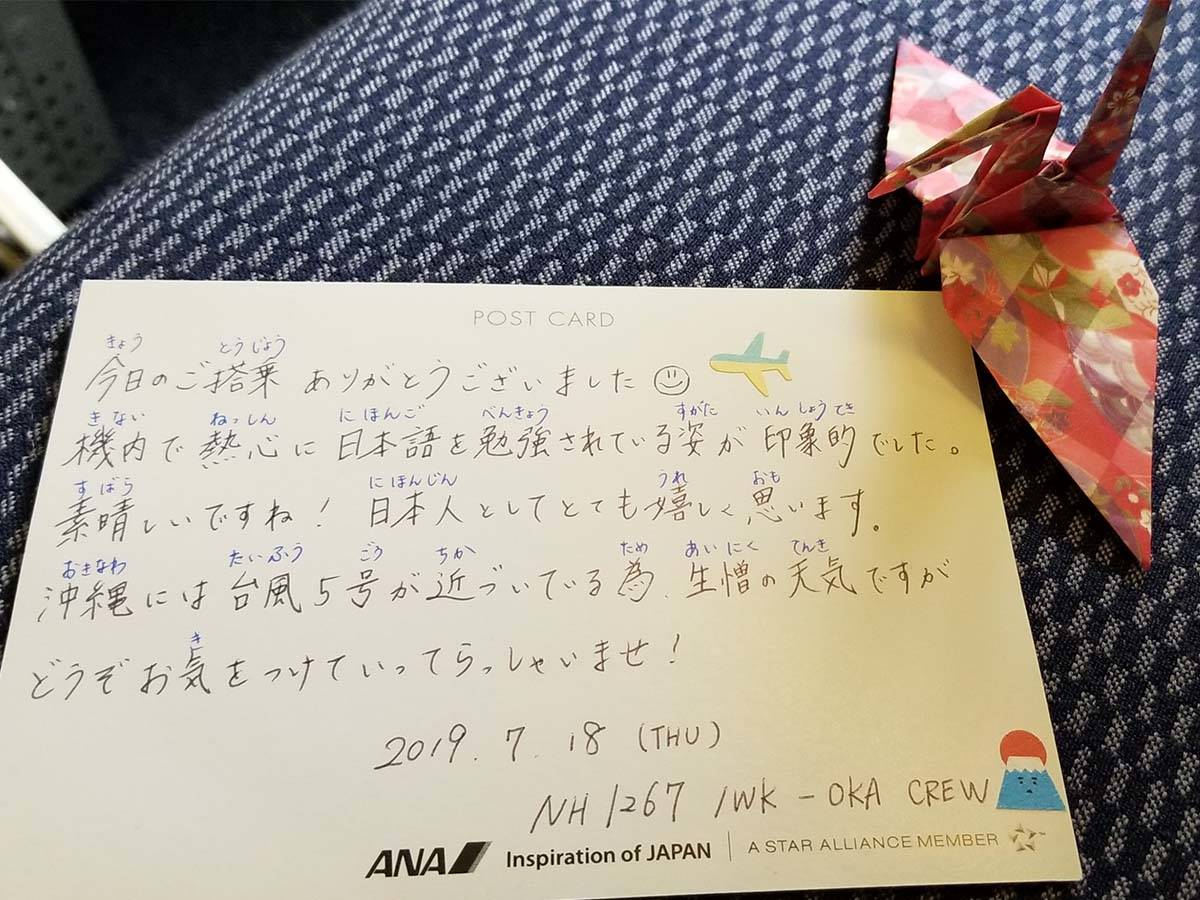 POST CARD
きょう とうじょう
今日のご搭乗 ありがとうございました
きない ねっしん にほんご べんきょう すがた いんしょうてき
機内で熱心に日本語を勉強されている姿が印象的でした。
すばら にほんじん うれ おも
素晴しいですね! 日本人としてとても嬉しく思います。
おきなわ たいふう ごう ちか ため あいにく てんき
沖縄には台風5号が近づいている為、生憎の天気ですが
き
どうぞお気をつけていってらっしゃいませ!
2019.7.18 (THU)
NH1267 IWK - OKA CREW
ANA Inspiration of JAPAN A STAR ALLIANCE MEMBER